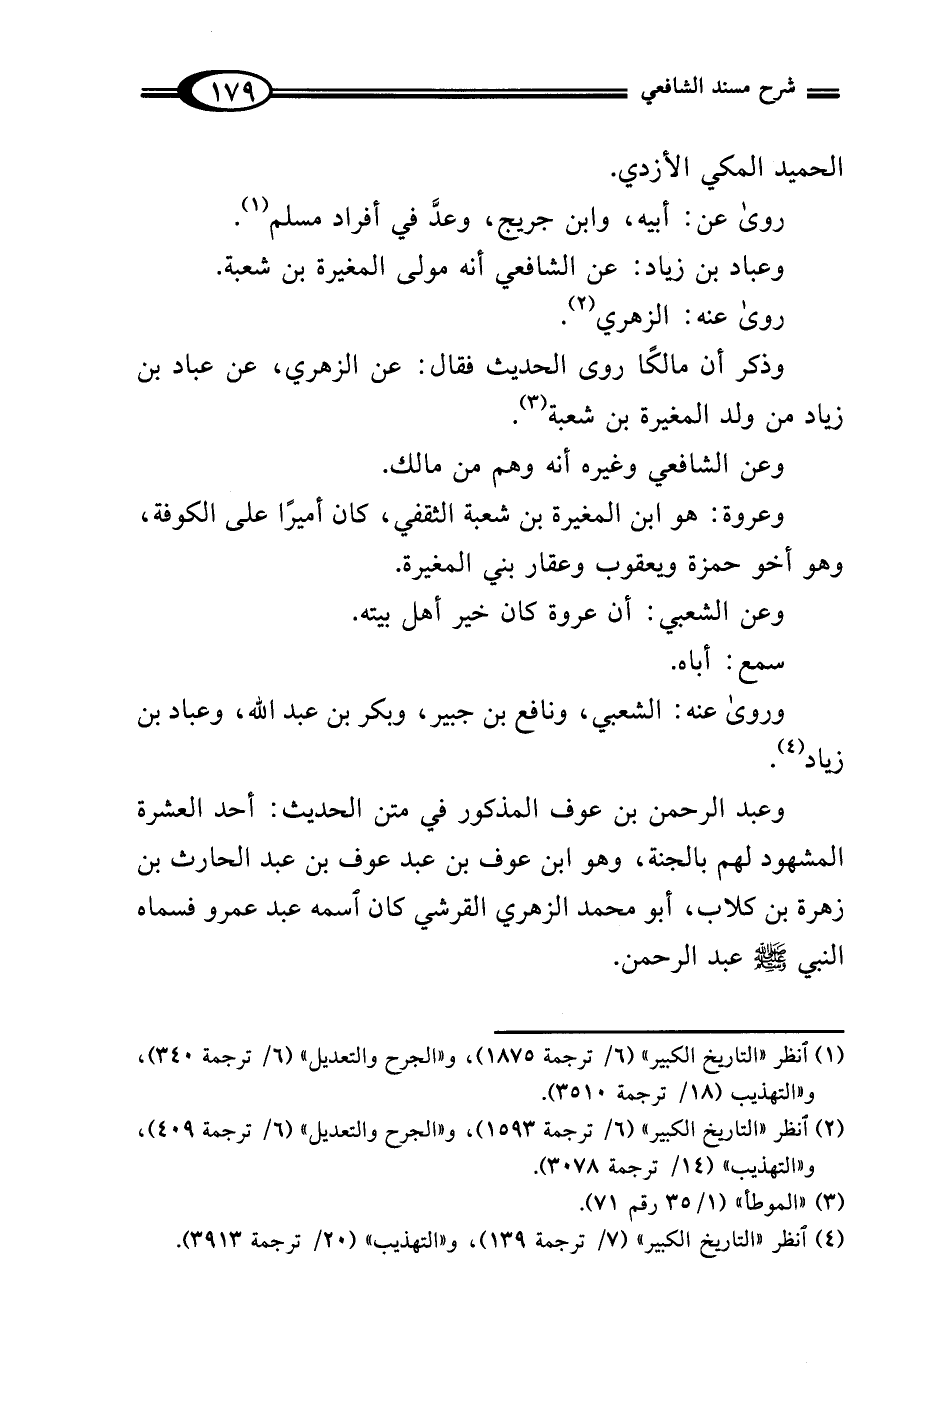 شرح مسند الشافعي ١٧٩
الحميد المكي الأزدي.
روىٰ عن: أبيه، وابن جريج، وعدَّ في أفراد مسلم(١).
وعباد بن زياد: عن الشافعي أنه مولى المغيرة بن شعبة.
روىٰ عنه: الزهري(٢).
وذكر أن مالكًا روى الحديث فقال: عن الزهري، عن عباد بن
زياد من ولد المغيرة بن شعبة(٣).
وعن الشافعي وغيره أنه وهم من مالك.
وعروة: هو ابن المغيرة بن شعبة الثقفي، كان أميرًا على الكوفة،
وهو أخو حمزة ويعقوب وعقار بني المغيرة.
وعن الشعبي: أن عروة كان خير أهل بيته.
سمع: أباه.
وروىٰ عنه: الشعبي، ونافع بن جبير، وبكر بن عبد الله، وعباد بن
زياد(٤).
وعبد الرحمن بن عوف المذكور في متن الحديث: أحد العشرة
المشهود لهم بالجنة، وهو ابن عوف بن عبد عوف بن عبد الحارث بن
زهرة بن كلاب، أبو محمد الزهري القرشي كان ٱسمه عبد عمرو فسماه
النبي ﷺ عبد الرحمن.
(١) ٱنظر «التاريخ الكبير» (٦/ ترجمة ١٨٧٥)، و«الجرح والتعديل» (٦/ ترجمة ٣٤٠)،
و«التهذيب (١٨/ ترجمة ٣٥١٠).
(٢) ٱنظر «التاريخ الكبير» (٦/ ترجمة ١٥٩٣)، و«الجرح والتعديل» (٦/ ترجمة ٤٠٩)،
و«التهذيب» (١٤/ ترجمة ٣٠٧٨).
(٣) «الموطأ» (١/ ٣٥ رقم ٧١).
(٤) ٱنظر «التاريخ الكبير» (٧/ ترجمة ١٣٩)، و«التهذيب» (٢٠/ ترجمة ٣٩١٣).